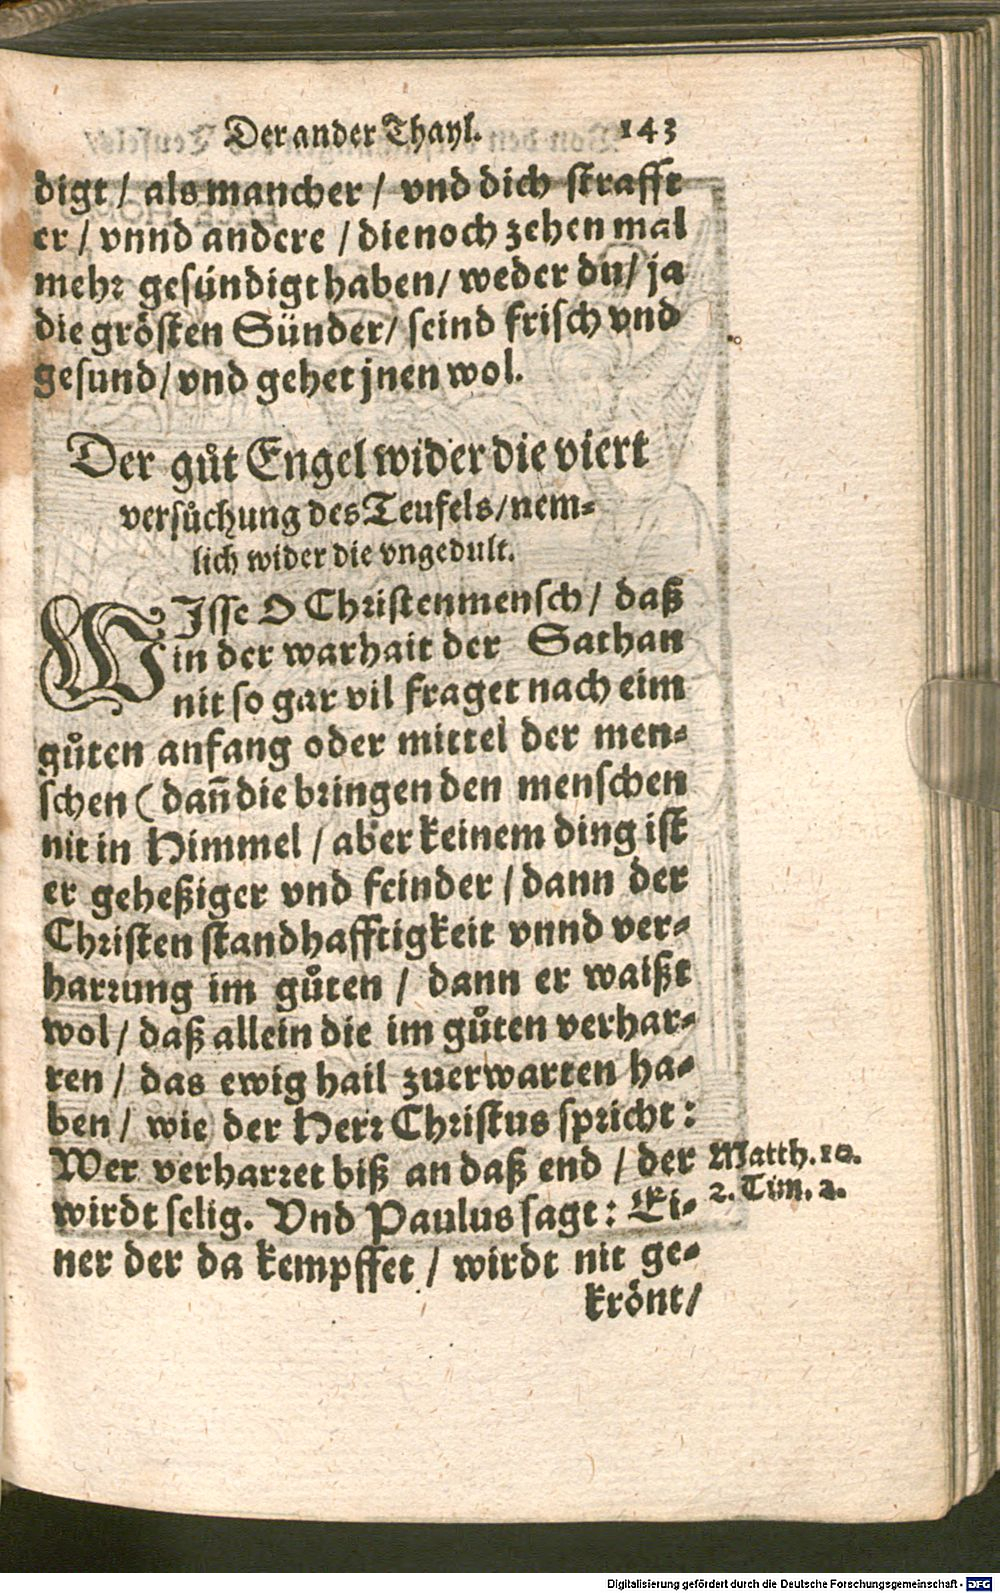 Der ander Thayl. 143
digt / als mancher / vnd dich strafft
er / vnnd andere / die noch zehen mal
mehr gesündigt haben / weder du / ja
die grösten Sünder / seind frisch vnd
gesund / vnd gehet jnen wol.
Der gůt Engel wider die viert
versůchung des Teufels / nem-
lich wider die vngedult.
WIsse O Christenmensch / daß
in der warhait der Sathan
nit so gar vil fraget nach eim
gůten anfang oder mittel der men-
schen (dañ die bringen den menschen
nit in Himmel / aber keinem ding ist
er geheßiger vnd feinder / dann der
Christen standhafftigkeit vnnd ver-
harrung im gůten / dann er waißt
wol / daß allein die im gůten verhar-
ren / das ewig hail zuerwarten ha-
ben / wie der Herr Christus spricht :
Wer verharret biß an daß end / der
wirdt selig. Vnd Paulus sagt : Ei-
ner der da kempffet / wirdt nit ge-
krönt /
Matth. 10.
2. Tim. 2.
Digitalisierung gefördert durch die Deutsche Forschungsgemeinschaft - DFG